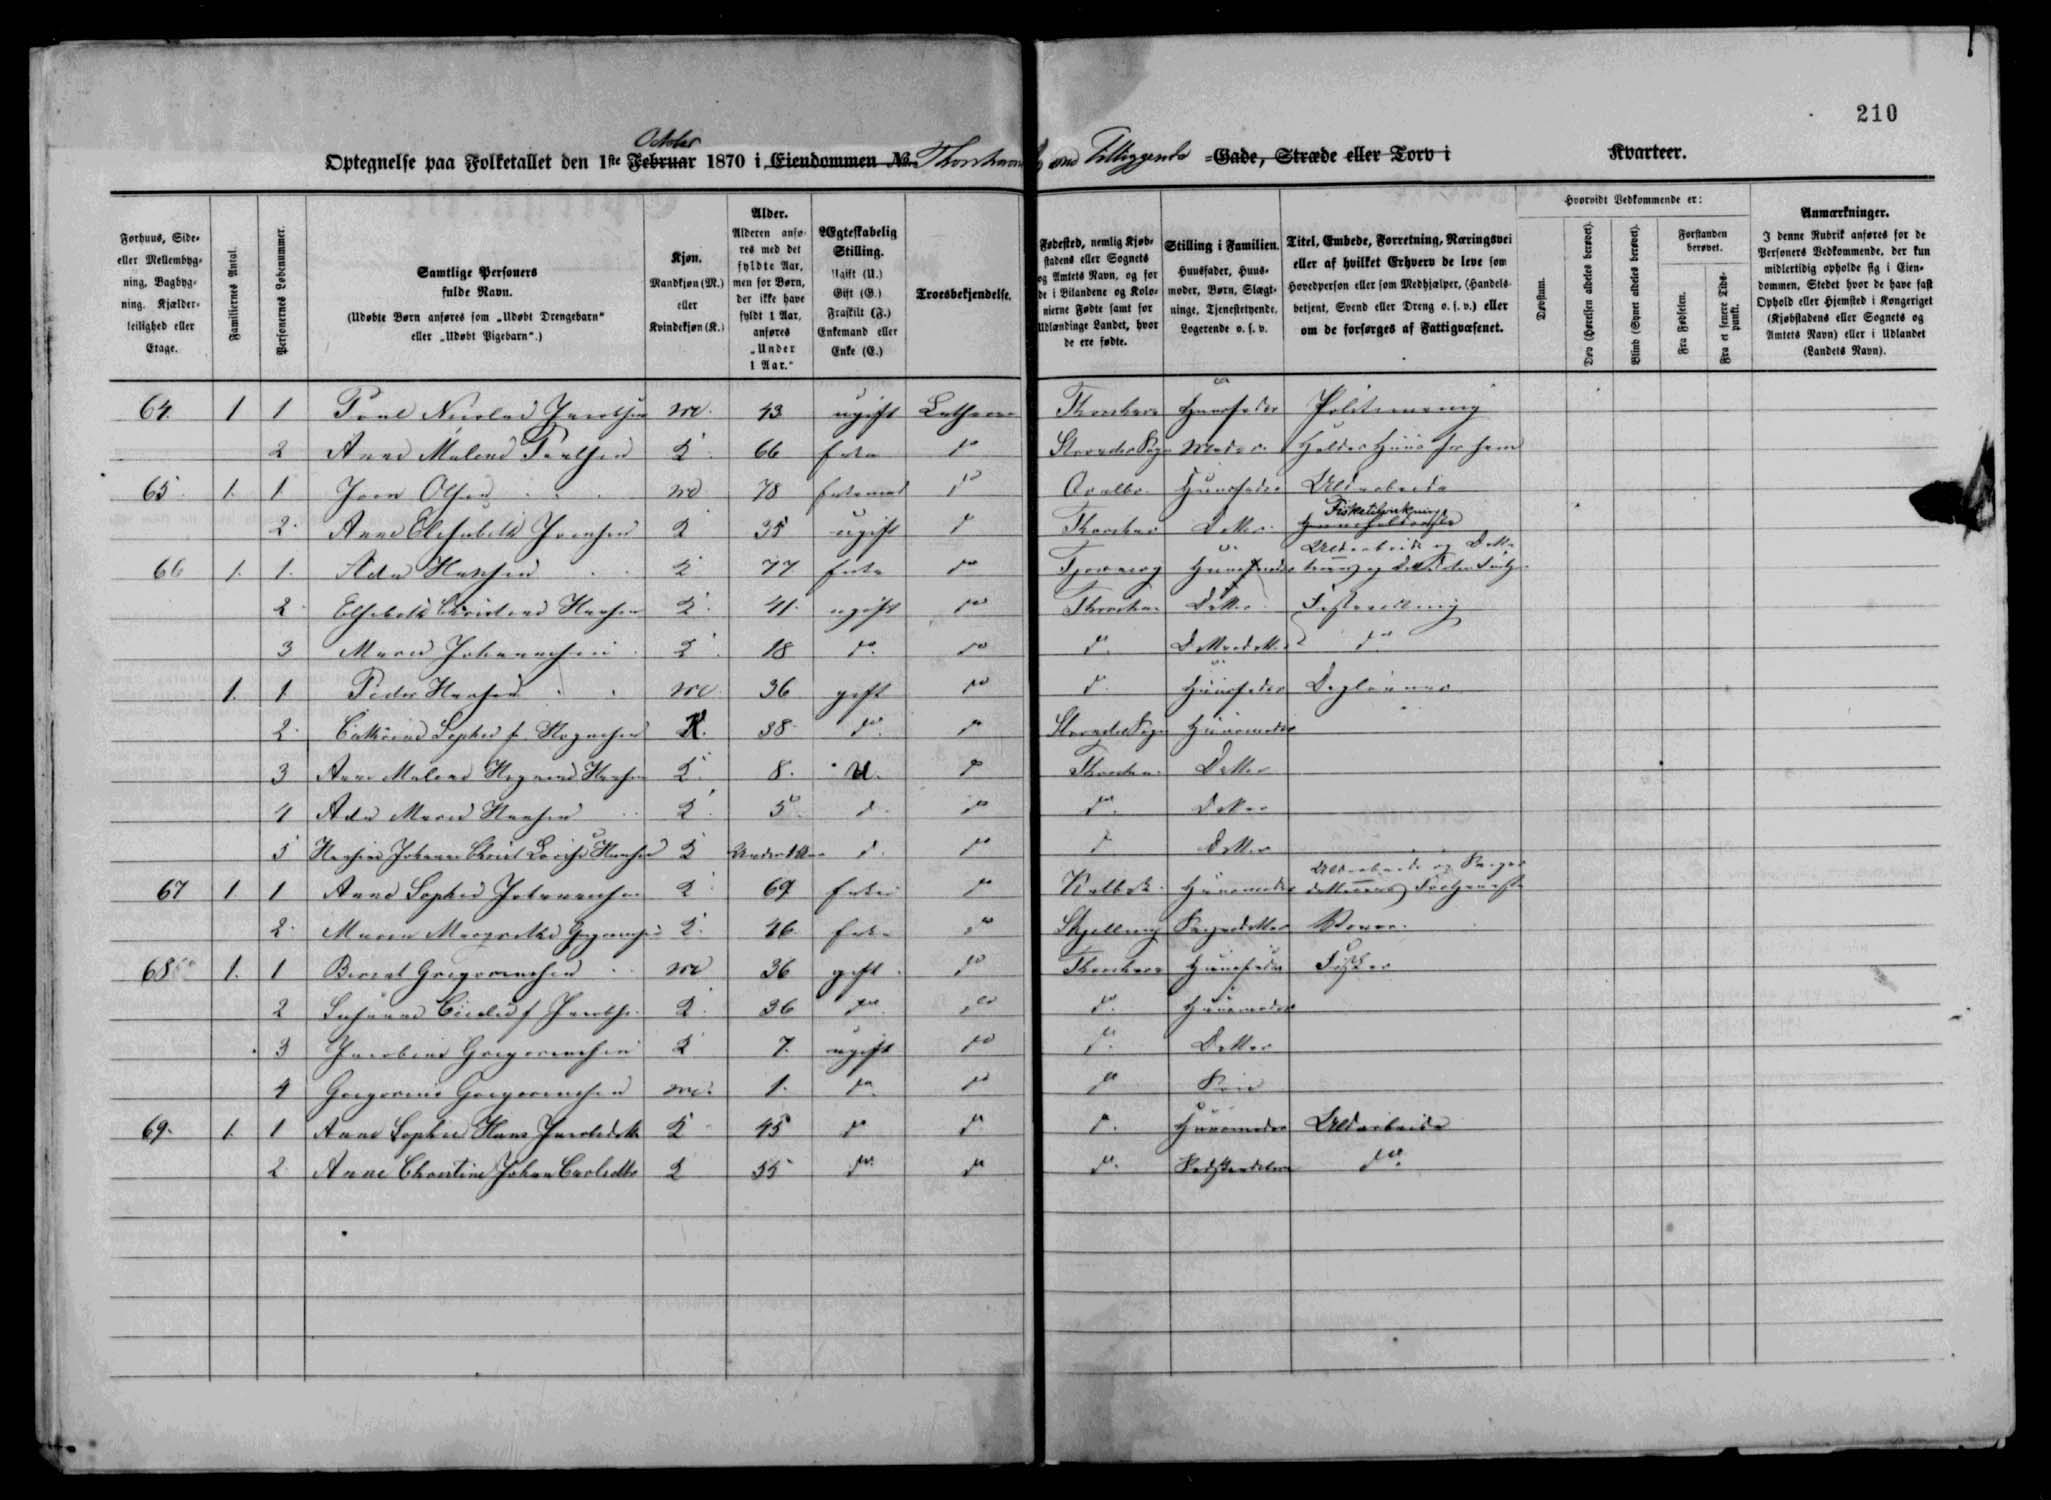 210
October
Optegnelse paa Folketallet den 1ste Februar 1870 i Eiendommen No. Thorshavn og Tilliggende =Gade, Stræde eller Torv i Kvarteer.
Forhuus, Side= eller Mellembyg= ning, Bagbyg= ning. Kjælder= leilighed eller Etage.
Familiernes Antal.
Personernes Løbenummer.
Samtlige Personers fulde Navn.
(Udøbte Børn anføres som „Udøbt Drengebarn" eller „Udøbt Pigebarn".)
Kjøn.
Mandkjøn (M.) eller Kvindekjøn (K.)
Alder.
Alderen anfø- res med det fyldte Aar, men for Børn, der ikke have fyldt 1 Aar, anføres „Under 1 Aar."
Ægteskabelig Stilling.
Ugift (U.) Gift (G.) Fraskilt (F.) Enkemand eller Enke (E.)
Troesbekjendelse.
Fødested, nemlig Kjøb= stadens eller Sognets og Amtets Navn, og for de i Bilandene og Kolo= nierne Fødte samt for Udlændinge Landet, hvor de ere fødte.
Stilling i Familien.
Huusfader, Huus= moder, Børn, Slægt= ninge, Tjenestetyende, Logerende o. s. v.
Titel, Embede, Forretning, Næringsvei eller af hvilket Erhverv de leve som Hovedperson eller som Medhjælper, (Handels- betjent, Svend eller Dreng o. s. v.) eller om de forsørges af Fattigvæsenet.
Hvorvidt Vedkommende er:
Døvstum.
Døv (Hørelsen aldeles berøvet).
Blind (Synet aldeles berøvet).
Forstanden berøvet.
Fra Fødselen.
Fra et senere Tids- punkt.
Anmærkninger.
I denne Rubrik anføres for de Personers Vedkommende, der kun midlertidig opholde sig i Eien= dommen, Stedet hvor de have fast Ophold eller Hjemsted i Kongeriget (Kjøbstadens eller Sognets og Amtets Navn) eller i Udlandet (Landets Navn).
64 1 1 Poul Nicolai Jacobsen M. 43 ugift Luthersk Thorshavn Huusfader
2 Anne Malene Poulsen K. 66 Enke do Moder Holder Huus for ham
65 1. 1 Joen Olsen M 78 Enkemand do Qvalbø Huusfader Uldarbeide
2. Anne Elisabeth Joensen K 35 ugift do Thorshavn Datter Fisketilvirkning
66 1. 1. Ada Hansen K 77 Enke do Huusmoder Uldarbeide og
2 Elsebeth Christine Hansen K. 41. ugift do Thorshavn Datter
3 Maren Johannesen K. 18 do. do do. Datterdatter do
1. 1 Peder Hansen M. 36 gift do do. Huusfader Daglønner
2. Cathrine Sophie f. K. 38 do. do Huusmoder
3 Anne Malene Hansen K. 8. U. do Thorshavn Datter
4 Ada Maria Hansen K. 5 do. do do. Datter
5 Johanne Hansen K Under 1 Aar do. do do Datter
67 1. 1 Anne Sophie Johannesen K 69 Enke do Kalbak Huusmoder Uldarbeide og
2. Maren Margrethe K. 46. Enke do
68 1. 1 Berent Gregoriussen M 36 gift do Thorshavn Huusfader Fisker
2 Susanne f. K. 36 do. do do. Huusmoder
3 Jacobine Gregoriussen K 7. ugift do do. Datter
4 Gregorius Gregoriussen M. 1. do. do do Søn
69. 1. 1 Anne Sophie Hans Jacobsdatter K 45 do do do. Huusmoder Uldarbeide
2 Anne Christine Johan K 55 do. do do. do.